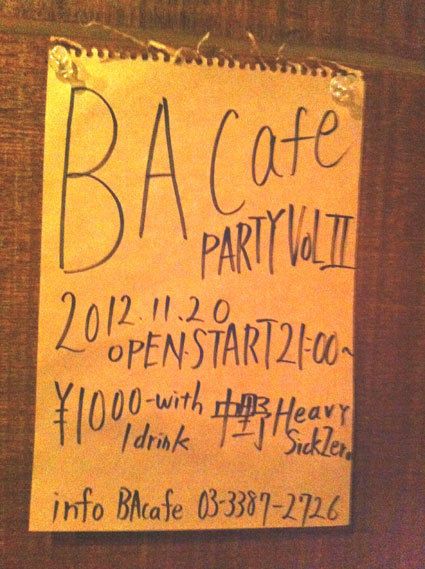 BA Cafe
PARTY VOL II
2012.11.20
OPEN·START 21:00~
¥1000-with 中野 Heavy
1drink SickZero
info BAcafe 03-3387-2726